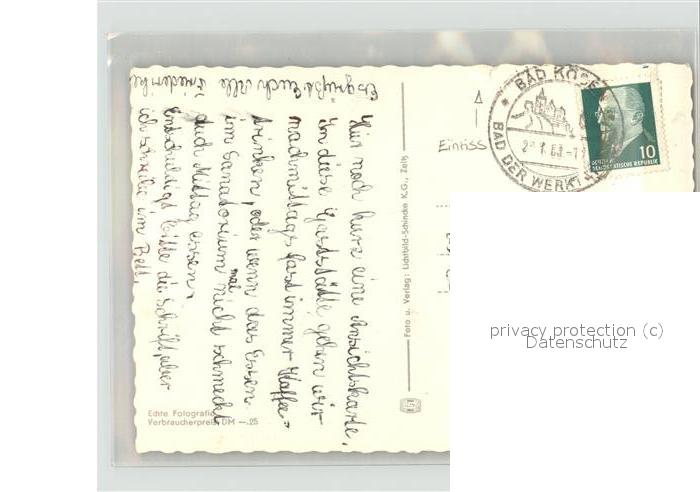 Hier noch kurz eine Ansichtskarte.
In diese Gaststätte gehen wir
nachmittags fast immer Kaffee=
trinken, oder wenn das Essen
im Sanatorium mal nicht schmeckt
auch Mittag essen.
Entschuldigt bitte die Schrift, aber
ich schreibe im Bett.
Es grüßt Euch alle
Foto u. Verlag: Lichtbild-Schincke K.G., Zeitz
Echte Fotografie
Verbraucherpreis DM —.25
Einriss
BAD KÖSEN
BAD DER WERKT
10
DEUTSCHE
DEMOKRATISCHE REPUBLIK
privacy protection (c)
Datenschutz